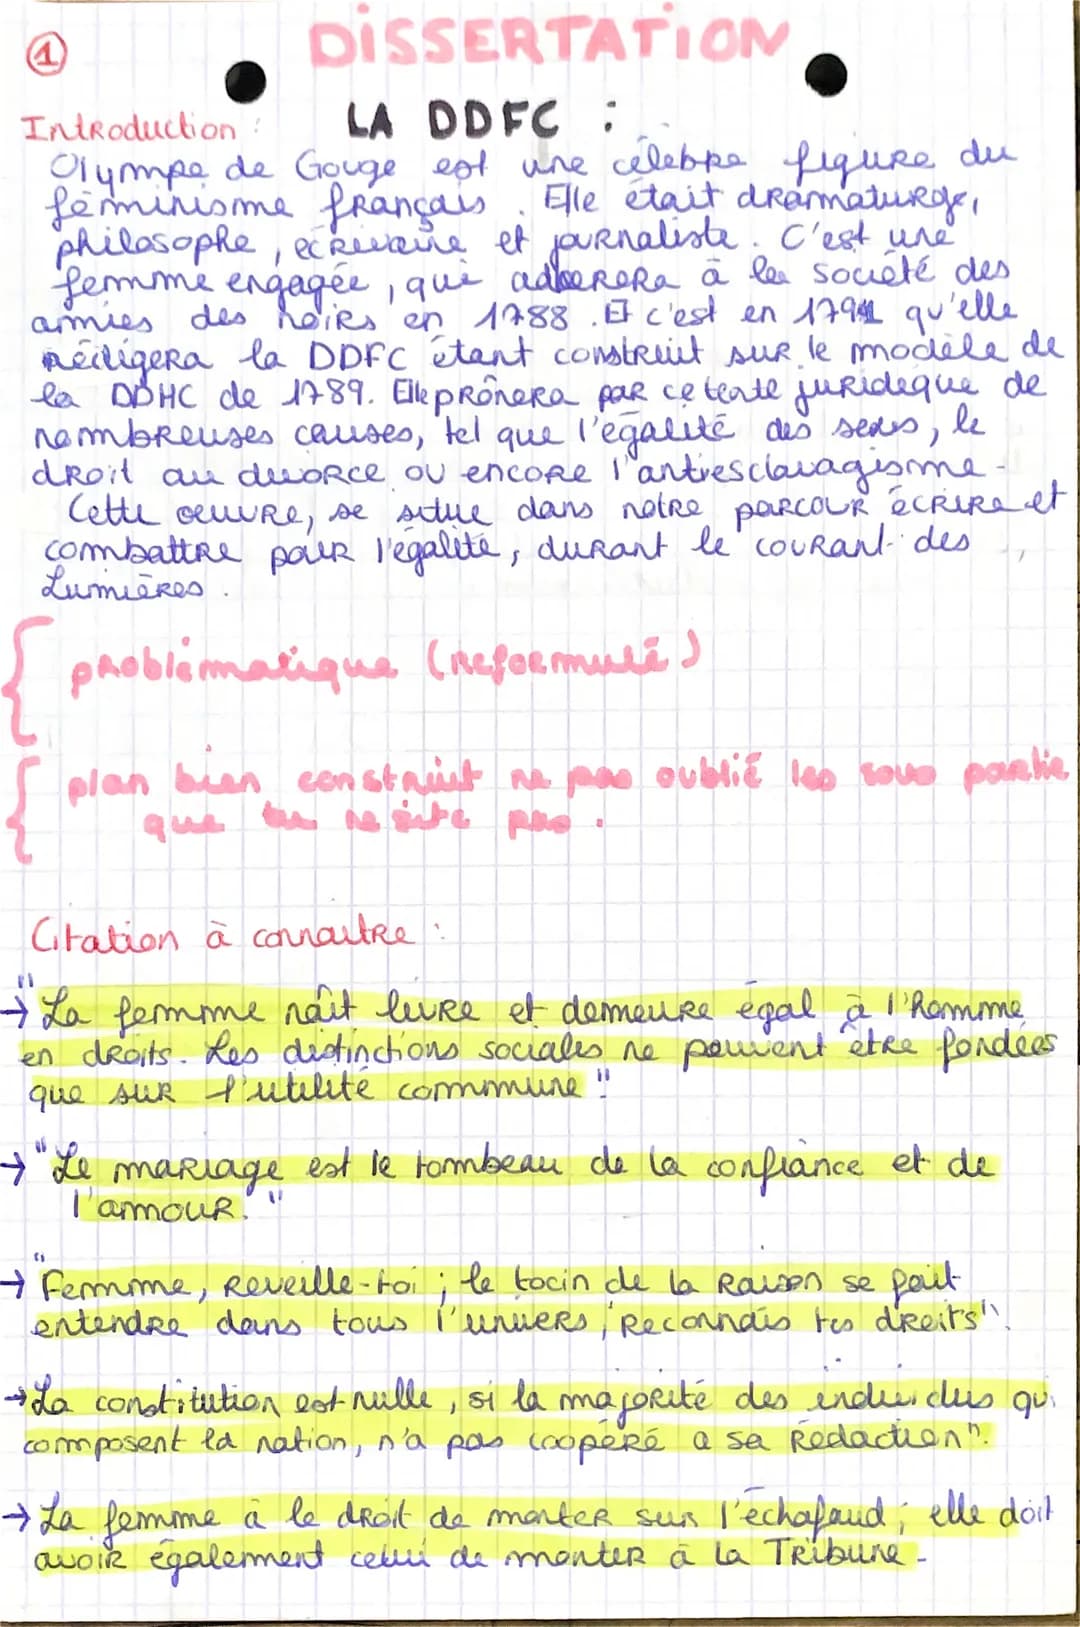 1
DISSERTATION
LA DDFC :
Introduction :
Olympe de Gouge est une célèbre figure du
féminisme français. Elle était dramaturge,
philosophe, écrivaine et journaliste. C'est une
femme engagée, qui adherera à la société des
amies des noirs en 1788. Et c'est en 1791 qu'elle
rédigera la DDFC étant construit sur le modèle de
la DDHC de 1789. Elle prônera par ce texte juridique de
nombreuses causes, tel que l'égalité des sexes, le
droit au divorce ou encore l'antiesclavagisme.
Cette œuvre, se situe dans notre parcour écrire et
combattre pour l'égalité, durant le courant des
Lumières.
problématique (reformulé)
plan bien construit ne pas oublié les sous partie
que tu ne site pas.
Citation à connaitre :
→ "La femme naît livre et demeure égal à l'homme
en droits. Les distinctions sociales ne peuvent être fondées
que sur l'utilité commune"
→ "Le mariage est le tombeau de la confiance et de
l'amour."
→ "Femme, reveille-toi ; le tocin de la raison se fait
entendre dans tous l'univers ; reconnais tes droits".
→ La constitution est nulle, si la majorité des individus qui
composent la nation, n'a pas coopéré a sa rédaction".
→ La femme à le droit de monter sur l'échafaud ; elle doit
avoir également celui de monter à la Tribune.